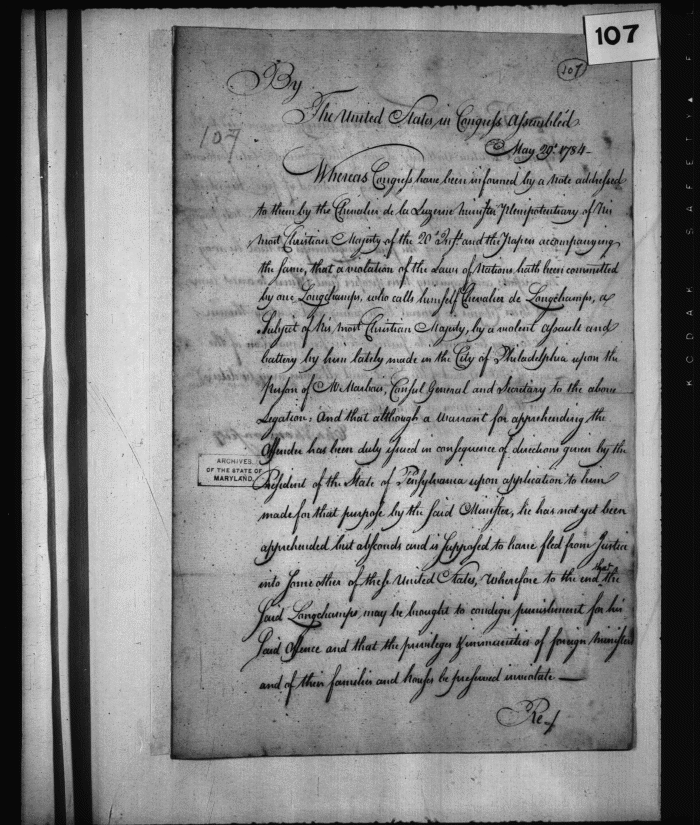 107
107
By
The United States in Congress Assembled
107
May 29th 1784
Whereas Congress have been informed by a Note addressed
to them by the Chevalier de la Luzerne Minister Plenipotentiary of his
most Christian Majesty of the 20th Inst. and the Papers accompanying
the same, that a violation of the Laws of Nations hath been committed
by one Longchamps, who calls himself Chevalier de Longchamps, a
Subject of his most Christian Majesty, by a violent assault and
battery by him lately made in the City of Philadelphia upon the
person of Mr Marbois, Consul General and Secretary to the above
Legation: And that although a Warrant for apprehending the
Offender has been duly issued in consequence of directions given by the
ARCHIVES
OF THE STATE OF
MARYLAND
President of the State of Pensylvania upon application to him
made for that purpose by the said Minister, he has not yet been
apprehended but absconds and is supposed to have fled from Justice
into some other of these United States, Wherefore to the end that the
said Longchamps may be brought to condign punishment for his
said Offence and that the privileges & immunities of foreign ministers
and of their families and houses be preserved inviolate
Re
KODAK SAFETY